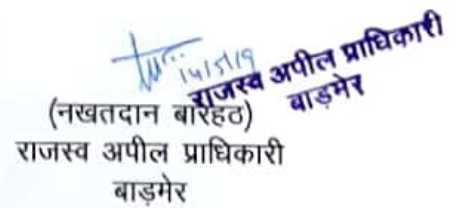 14/5/19
राजस्व अपील प्राधिकारी
बाड़मेर
(नखतदान बारहठ)
राजस्व अपील प्राधिकारी
बाड़मेर